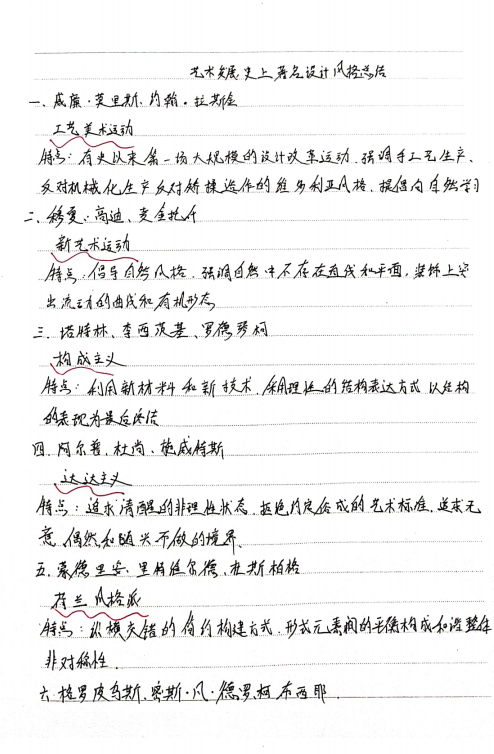 艺术发展史上著名设计风格总结
一、威廉·莫里斯、约翰·拉斯金
工艺美术运动
特点：有史以来第一场大规模的设计改革运动，强调手工艺生产、
反对机械化生产反对矫揉造作的维多利亚风格，提倡向自然学习
二、穆夏、高迪、麦金托斤
新艺术运动
特点：倡导自然风格，强调自然中不存在直线和平面，装饰上突
出流动的曲线和有机形态
三、塔特林、李西茨基、罗德琴柯
构成主义
特点：利用新材料和新技术，采用理性的结构表达方式 以结构
的表现为最后终结
四、阿尔普、杜尚、施威特斯
达达主义
特点：追求清醒的非理性状态，拒绝约定俗成的艺术标准，追求无
意、偶然和随兴不做的境界、
五、蒙德里安、里特维尔德、杜斯柏格
荷兰风格派
特点：纵横交错的简约构建方式，形式元素间的平衡构成和谐整体
非对称性．
六、格罗皮乌斯、密斯·凡·德罗、柯布西耶．